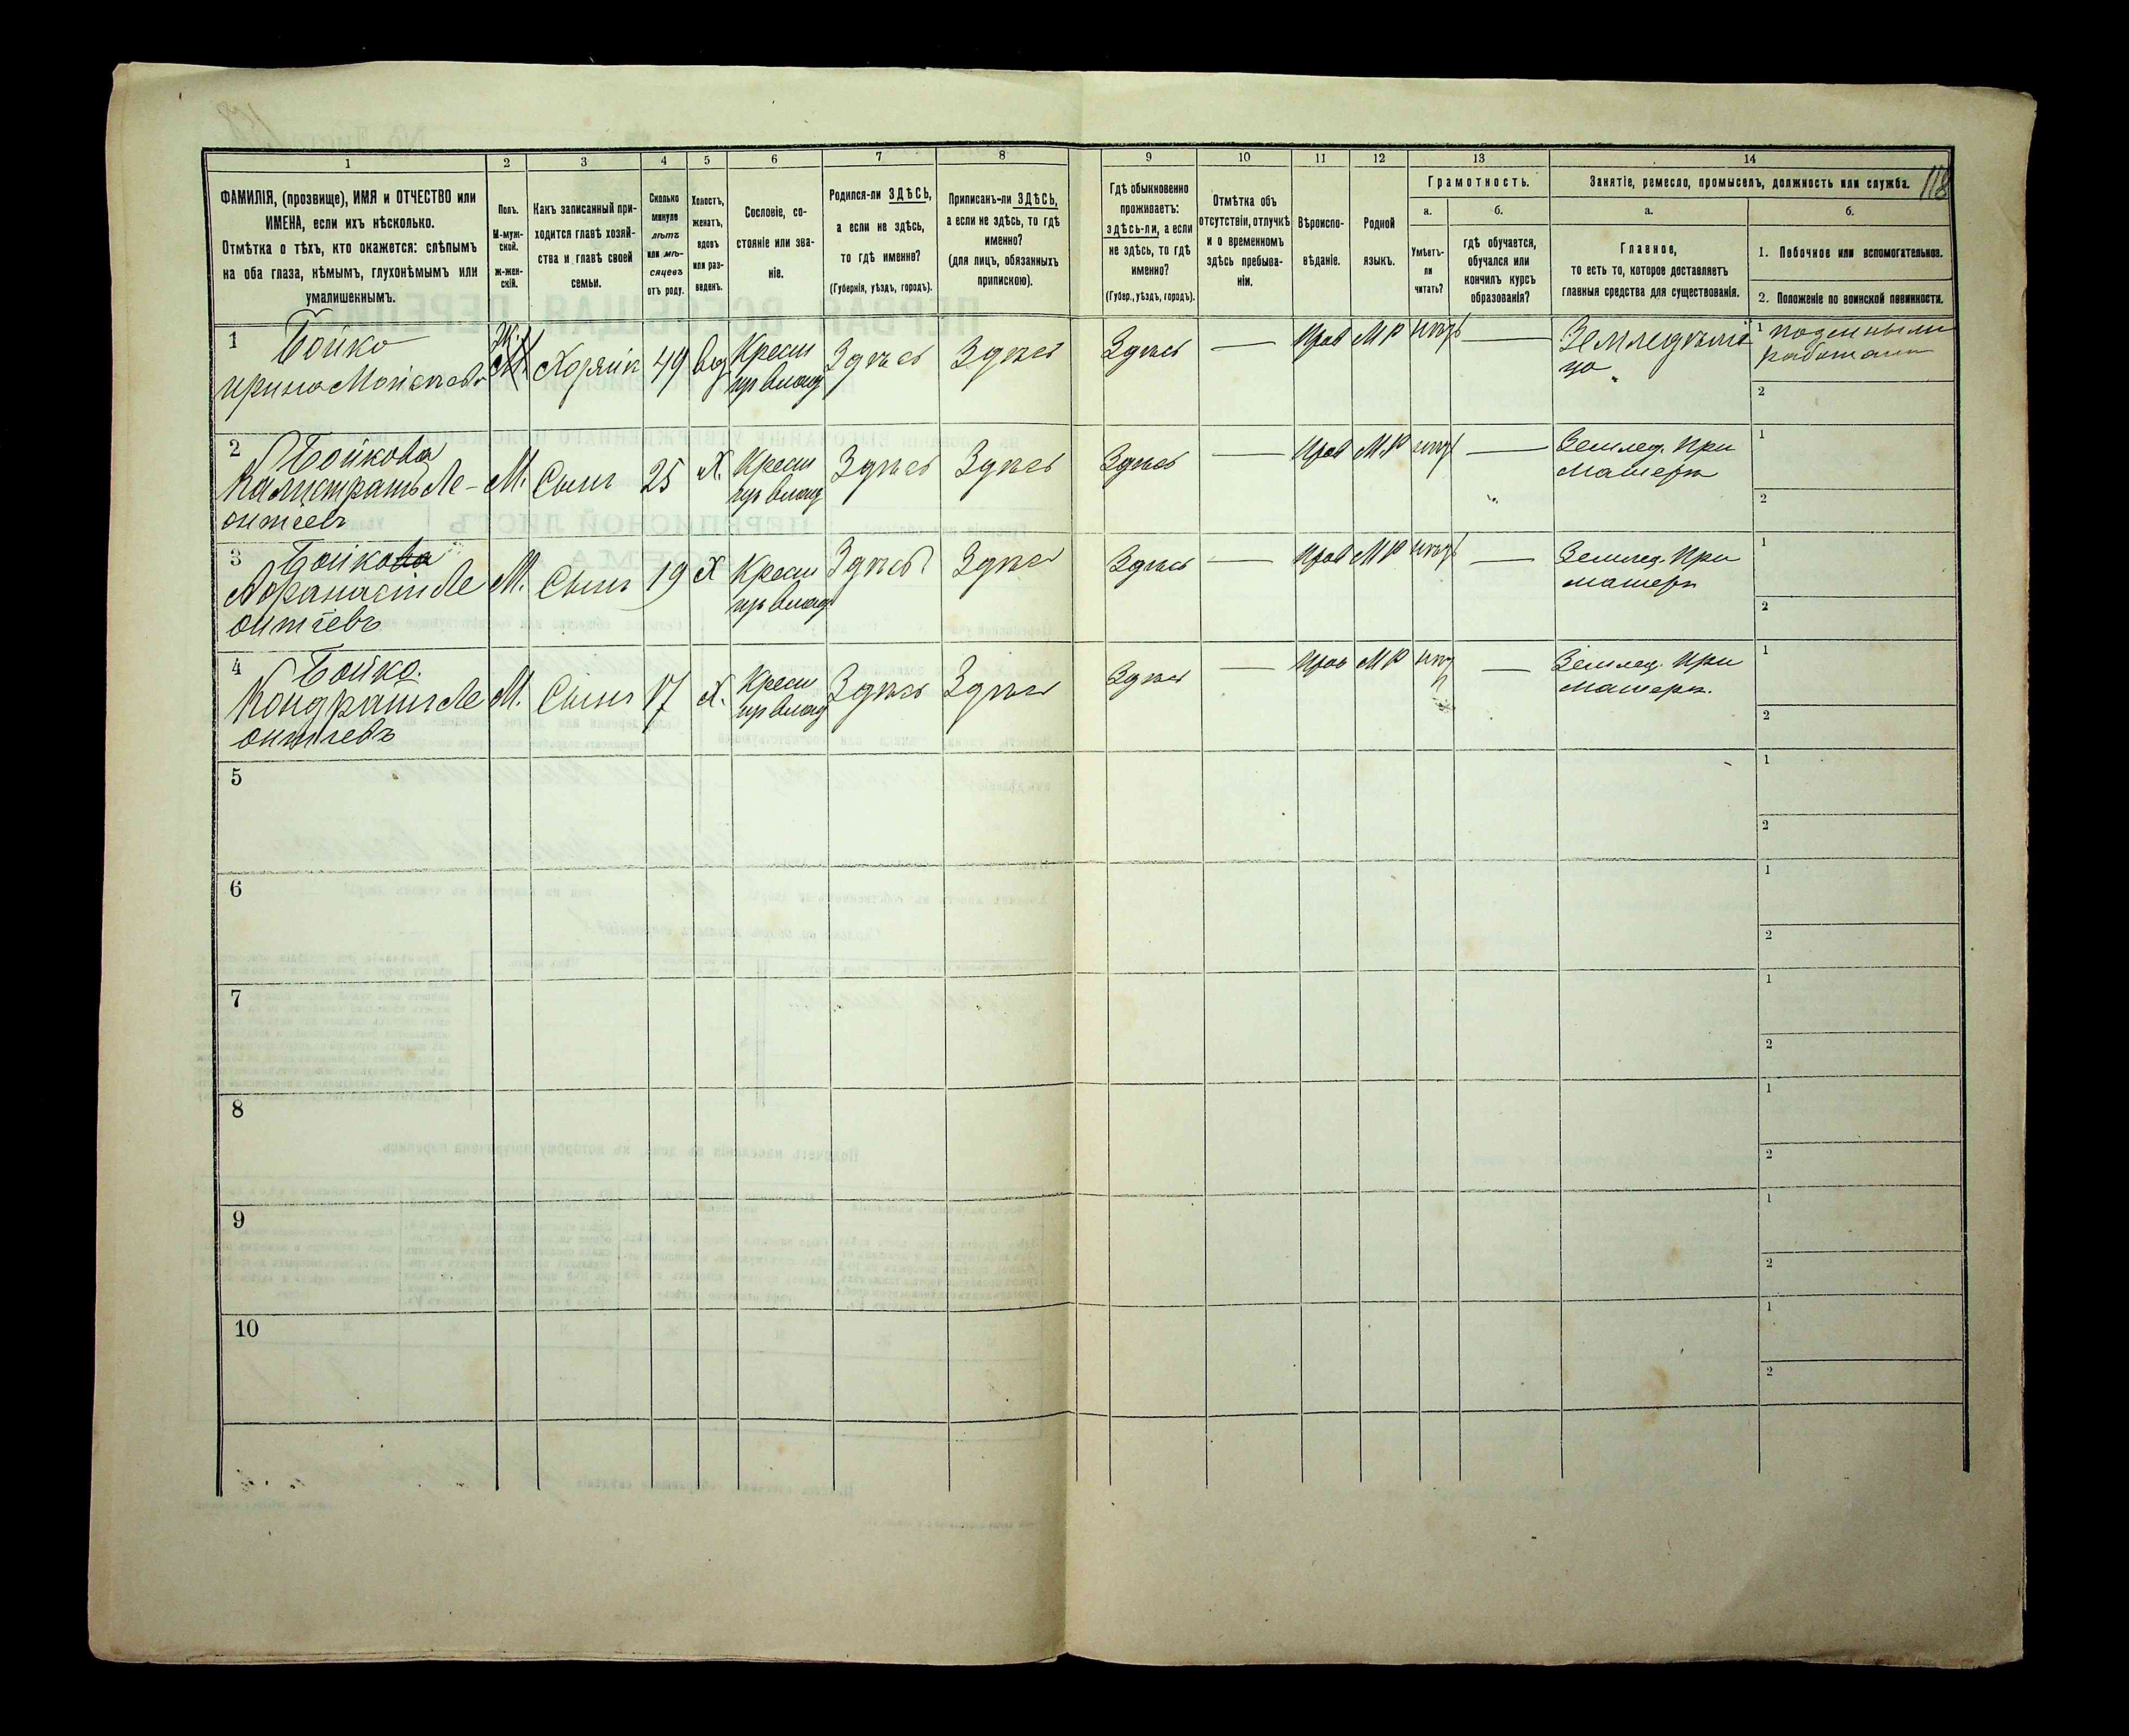 118
1 2 3 4 5 6 7 8 9 10 11 12 13 14
ФАМИЛІЯ, (прозвище), ИМЯ и ОТЧЕСТВО или
ИМЕНА, если ихъ нѣсколько.
Отмѣтка о тѣхъ, кто окажется: слѣпымъ
на оба глаза, нѣмымъ, глухонѣмымъ или
умалишеннымъ.
Полъ.
М-муж-
ской.
Ж-жен-
скій.
Какъ записанный при-
ходится главѣ хозяй-
ства и главѣ своей
семьи.
Сколько
минуло
лѣтъ
или мѣ-
сяцевъ
отъ роду.
Холостъ,
женатъ,
вдовъ
или раз-
веденъ.
Сословіе, со-
стояніе или зва-
ніе.
Родился-ли ЗДѢСЬ,
а если не здѣсь,
то гдѣ именно?
(Губернія, уѣздъ, городъ).
Приписанъ-ли ЗДѢСЬ,
а если не здѣсь, то гдѣ
именно?
(для лицъ, обязанныхъ
припискою).
Гдѣ обыкновенно
проживаетъ:
здѣсь-ли, а если
не здѣсь, то гдѣ
именно?
(Губер., уѣздъ, городъ).
Отмѣтка объ
отсутствіи, отлучкѣ
и о временномъ
здѣсь пребыва-
ніи.
Вѣроиспо-
вѣданіе.
Родной
языкъ.
Грамотность.
а.
Умѣетъ-
ли
читать?
б.
гдѣ обучается,
обучался или
кончилъ курсъ
образованія?
Занятіе, ремесло, промыселъ, должность или служба.
а.
Главное,
то есть то, которое доставляетъ
главныя средства для существованія.
б.
1. Побочное или вспомогательное.
2. Положеніе по воинской повинности.
1 Бойко
Ирина Моисеева Ж. Хозяйк 49 вд Крест Здѣсь Здѣсь Здѣсь — Прав МР нѣтъ — Земледѣлі 1 поденными
из влад ца работами
2
2 Бойкова
Калистратъ Ле- М. Сынъ 25 Х. Крест Здѣсь Здѣсь Здѣсь — Прав М.Р нѣтъ — Землед. при 1
онтіевъ из влад матери 2
3 Бойкова
Афанасій Ле М. Сынъ 19 Х Крест Здѣсь Здѣсь Здѣсь — Прав МР нѣтъ — Землед. при 1
онтіевъ из влад матери 2
4 Бойко.
Кондратъ Ле М. Сынъ 17 Х. Крест Здѣсь Здѣсь Здѣсь — Прав МР нѣт — Землед. при 1
онтіевъ из влад матери. 2
5 1
2
6 1
2
7 1
2
8 1
2
9 1
2
10 1
2